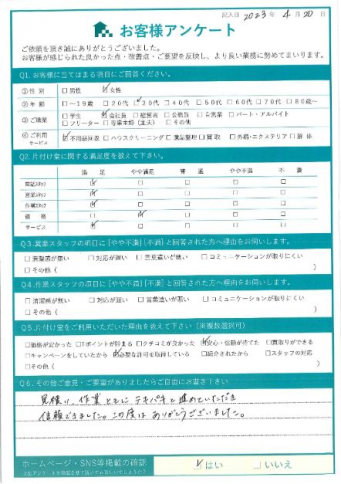 記入日 2023年 4月 20日
お客様アンケート
ご依頼を頂き誠にありがとうございました。
お客様が感じられた良かった点・改善点・ご要望を反映し、より良い業務に努めてまいります。
Q1. お客様に当てはまる項目にご回答ください。
①性 別 □男性 ☑女性
②年 齢 □~19歳 □20代 ☑30代 □40代 □50代 □60代 □70代 □80歳~
③ご職業 □学生 ☑会社員 □経営者 □公務員 □自営業 □パート・アルバイト
□フリーター □専業主婦(主夫) □その他
④ご利用サービス ☑不用品回収 □ハウスクリーニング □遺品整理 □買取 □外構・エクステリア □解体
Q2. 片付け堂に関する満足度を教えて下さい。
満足 やや満足 普通 やや不満 不満
電話スタッフ ☑ □ □ □ □
営業スタッフ ☑ □ □ □ □
作業スタッフ ☑ □ □ □ □
価格 □ ☑ □ □ □
サービス ☑ □ □ □ □
Q3. 営業スタッフの項目に[やや不満][不満]と回答された方へ理由をお伺いします。
□清潔感が無い □対応が遅い □言葉遣いが悪い □コミュニケーションが取りにくい
□その他( )
Q4. 作業スタッフの項目に[やや不満][不満]と回答された方へ理由をお伺いします。
□清潔感が無い □対応が遅い □言葉遣いが悪い □コミュニケーションが取りにくい
□その他( )
Q5. 片付け堂をご利用いただいた理由を教えて下さい(※複数選択可)
□価格が安かった □Tポイントが貯まる □クチコミが良かった ☑安心・信頼が持てた □買取りができる
□キャンペーンをしていたから ☑必要な許可を取得している □紹介されたから □スタッフの対応
□その他( )
Q6. その他ご意見・ご要望がありましたらご自由にお書き下さい
見積り、作業ともにテキパキと進めていただき
信頼できました。この度はありがとうございました。
ホームページ・SNS等掲載の確認
☑はい □いいえ